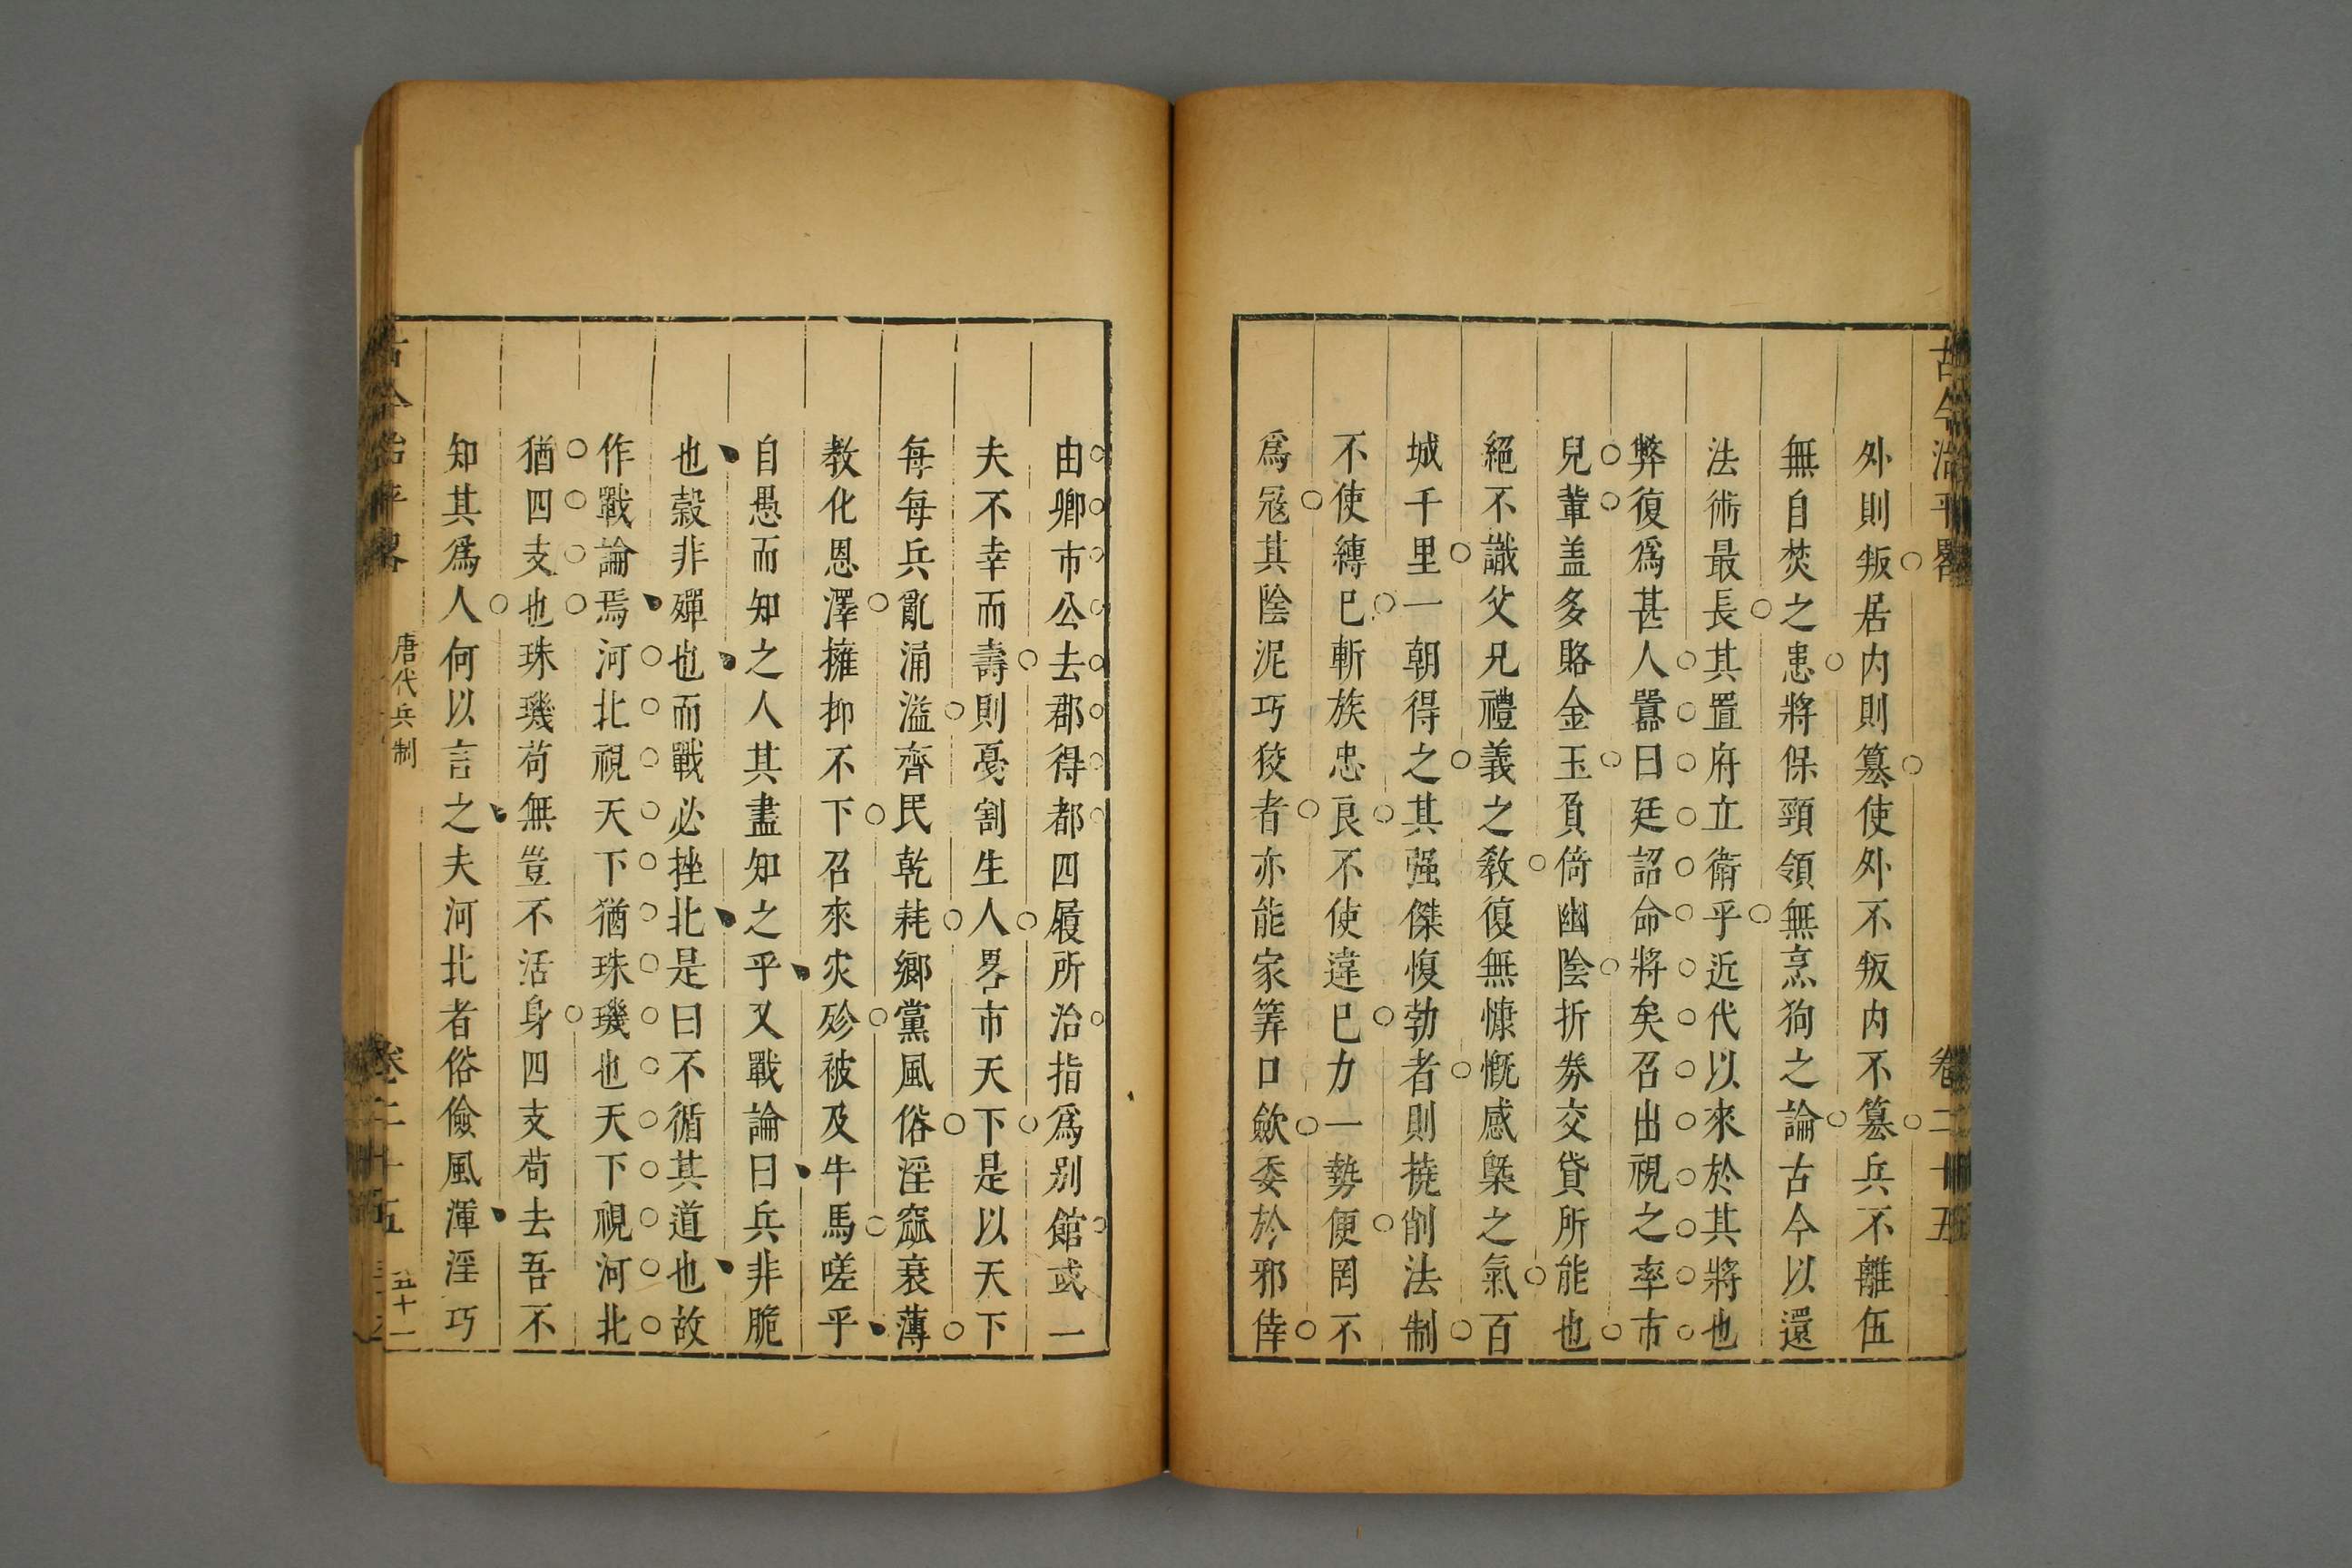 古今治平畧 卷二十五
外則叛居内則簒使外不叛内不簒兵不離伍
無自焚之患將保頸領無烹狗之論古今以還
法術最長其置府立衛乎近代以來於其將也
弊復爲甚人囂曰廷詔命將矣召出視之率市
兒輩盖多賂金玉負倚幽陰折券交貸所能也
絕不識父兄禮義之教復無慷慨感槩之氣百
城千里一朝得之其强傑愎勃者則撓削法制
不使縛已斬族忠良不使違已力一勢便罔不
爲冦其陰泥巧狡者亦能家筭口歛委於邪倖
由卿市公去郡得都四履所治指爲别館或一
夫不幸而壽則憂割生人畧市天下是以天下
每每兵亂涌溢齊民乾耗鄉黨風俗淫窳衰薄
教化恩澤擁抑不下召來灾沴被及牛馬嗟乎
自愚而知之人其盡知之乎又戰論曰兵非脆
也榖非殫也而戰必挫北是曰不循其道也故
作戰論焉河北視天下猶珠璣也天下視河北
猶四支也珠璣苟無豈不活身四支苟去吾不
知其爲人何以言之夫河北者俗儉風渾淫巧
古今治平畧 唐代兵制 卷二十五 五十一